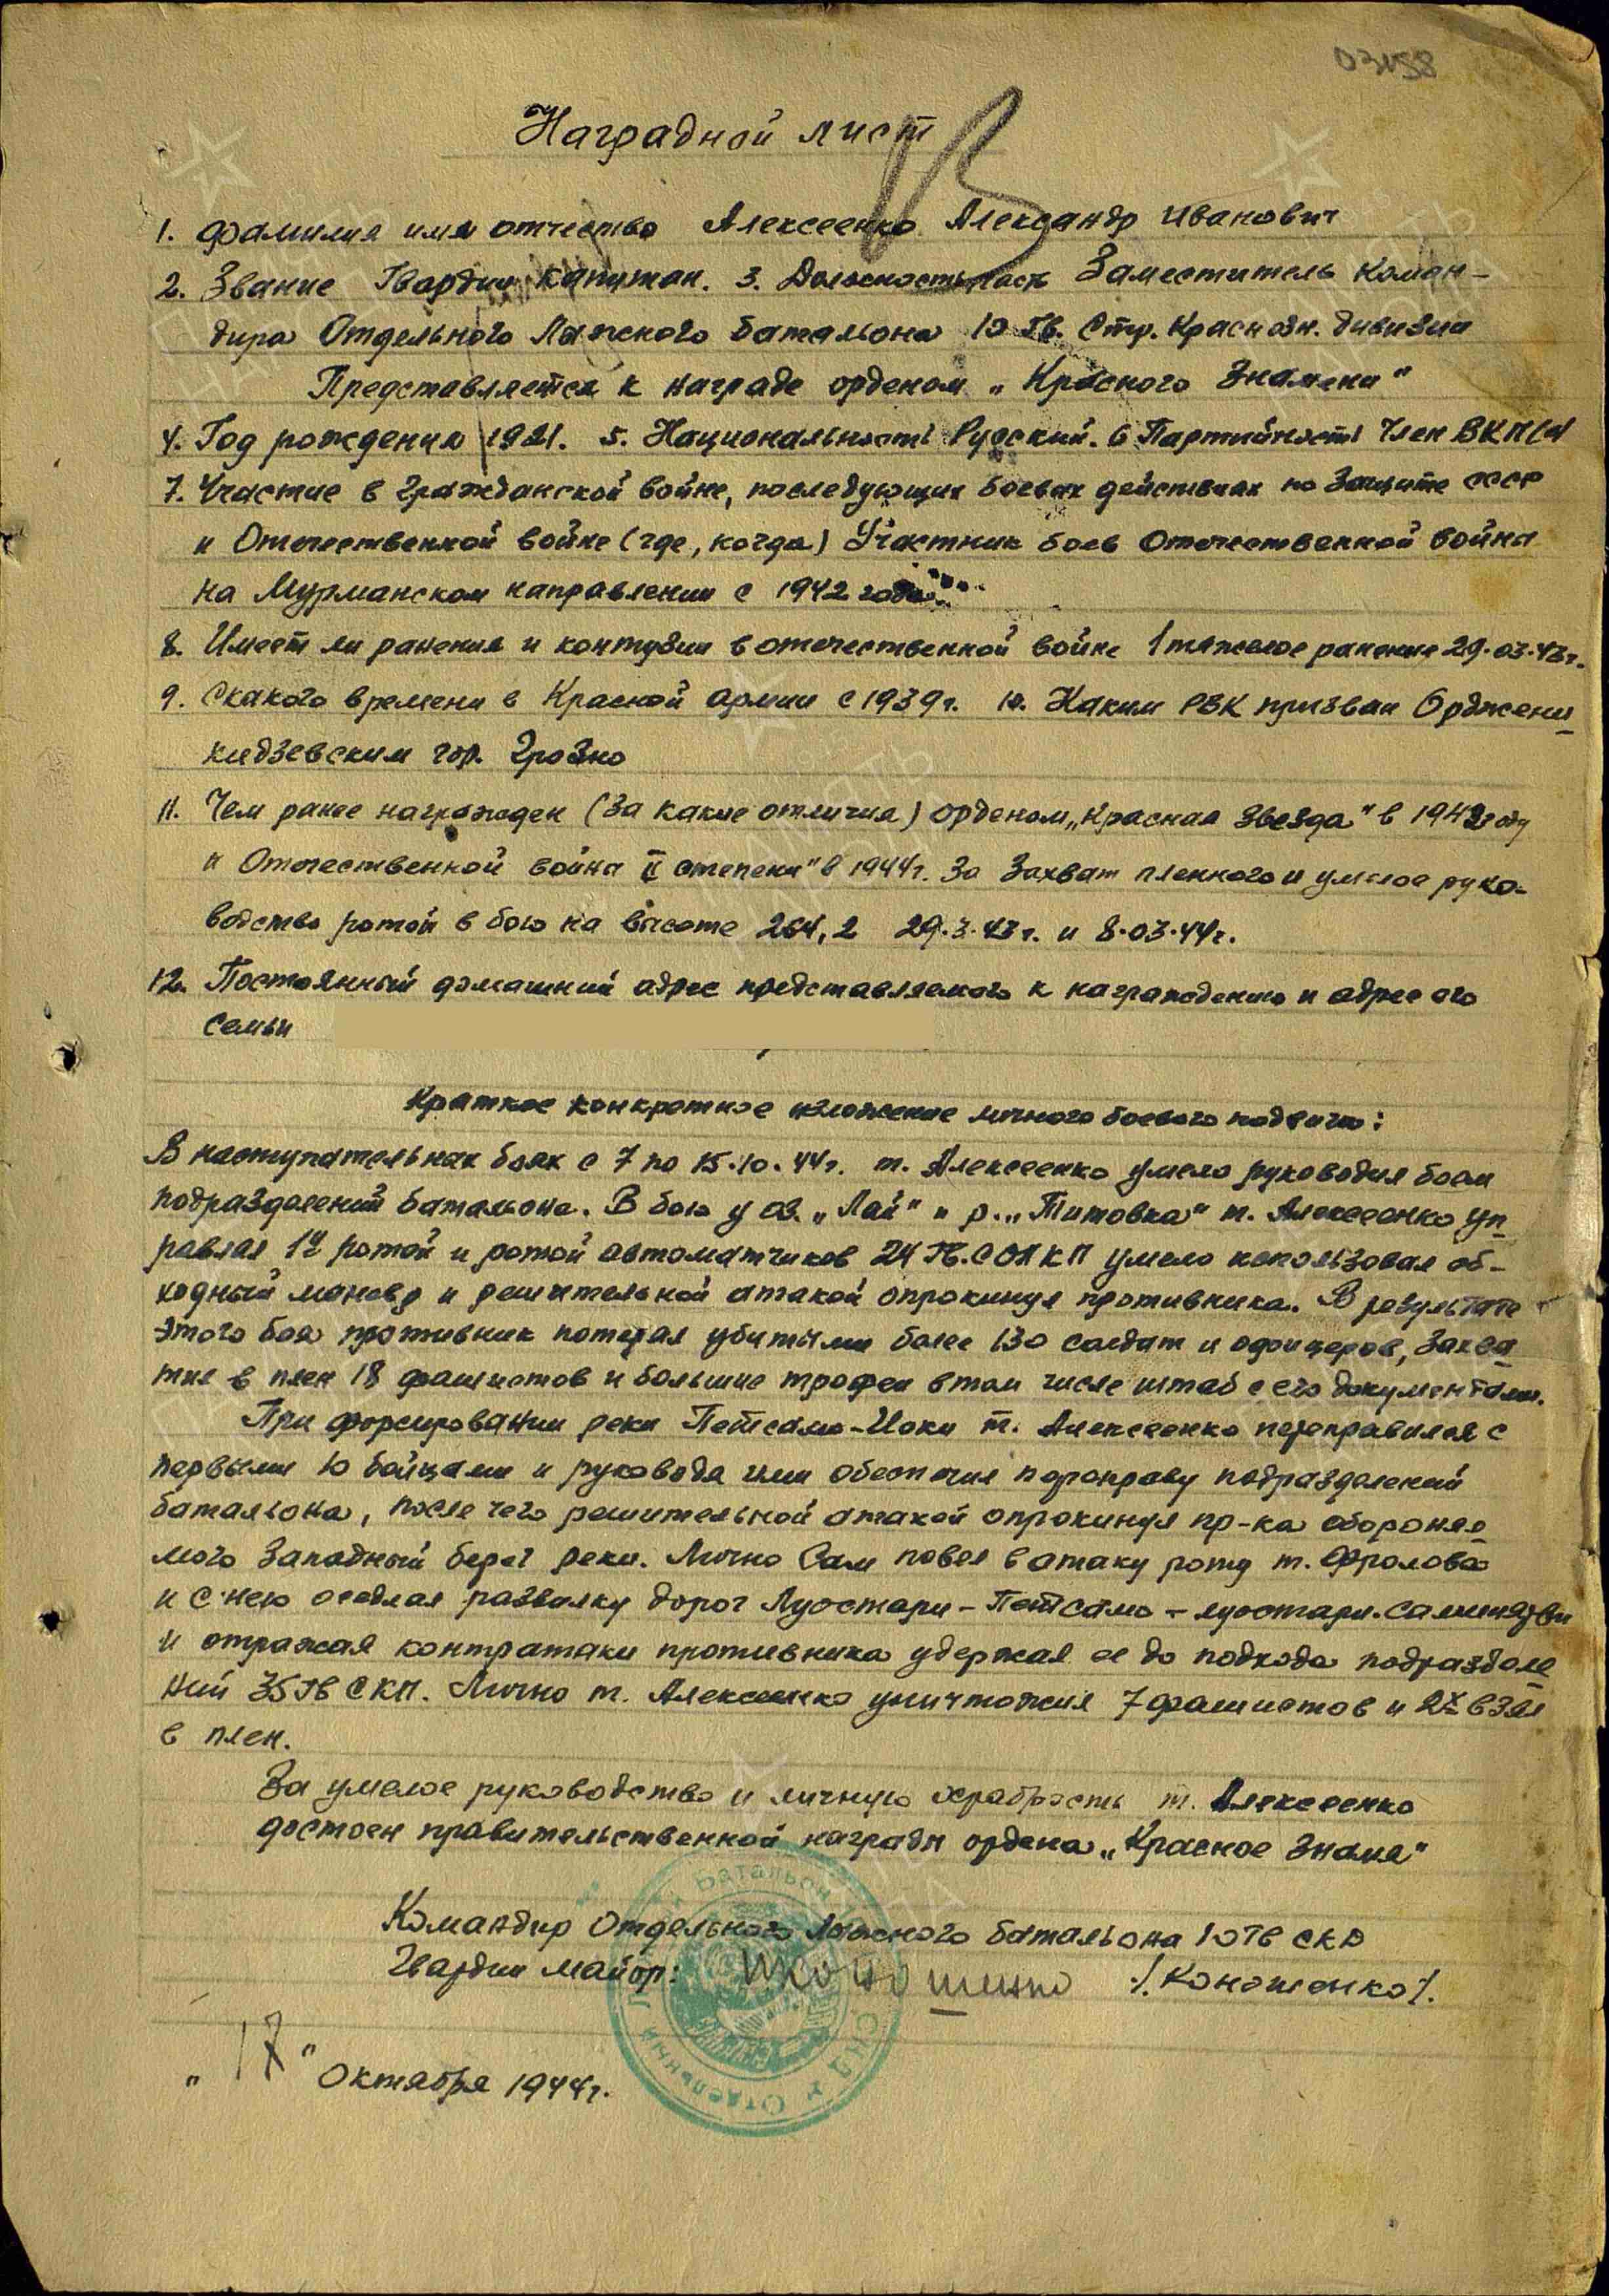 03158
Наградной лист
1. Фамилия имя отчество Алексеенко Александр Иванович
2. Звание Гвардии капитан. 3. Должность Заместитель коман-
дира Отдельного Лыжского батальона 10 Гв. Стр. Краснозн. дивизии
Представляется к награде орденом „Красного Знамени"
4. Год рождения 1921. 5. Национальность Русский. 6 Партийность Член ВКП(б)
7. Участие в гражданской войне, последующих боевых действиях по защите СССР
и Отечественной войне (где, когда) Участник боев Отечественной война
на Мурманском направлении с 1942 года
8. Имеет ли ранения и контузии в отечественной войне 1 тяжелое ранение 29.03.43г.
9. С какого времени в Красной армии с 1939г. 10. Каким РВК призван Орджени
кидзевским гор. Грозно
11. Чем ранее награжден (за какие отличия) орденом „Красная Звезда" в 1942 году
и Отечественной война II степени" в 1944г. За захват пленного и умелое руко-
водство ротой в бою на высоте 264,2 29.3.43г. и 8.03.44г.
12. Постоянный домашний адрес представляемого к награждению и адрес его
семьи
Краткое конкретное изложение личного боевого подвига:
В наступательных боях с 7 по 15.10.44г. т. Алексеенко умело руководил боем
подразделений батальона. В бою у оз. „Лай" и р. „Титовка" т. Алексеенко уп
равляя 1й ротой и ротой автоматчиков 24 Гв. С ОП К П умело использовал об-
ходный маневр и решительной атакой опрокинул противника. В результате
этого боя противник потерял убитыми более 130 солдат и офицеров, захва
тив в плен 18 фашистов и большие трофеи в том числе штаб с его документами.
При форсировании реки Петсамо-Иоки т. Алексеенко переправился с
первыми 10 бойцами и руководя ими обеспечил переправу подразделений
батальона, после чего решительной атакой опрокинул пр-ка обороняе
мого Западный берег реки. Лично Сам повел в атаку роту т. Фролова
и с нею оседлал развилку дорог Луостари - Петсамо - луостари.
и отражая контратаки противника удержал ее до подхода подразделе
ний 35 Гв СКП. Лично т. Алексеенко уничтожил 7 фашистов и 2х взял
в плен.
За умелое руководство и личную храбрость т. Алексеенко
достоен правительственной награды ордена „Красное Знамя"
Командир Отдельного Лыжного батальона 10 Гв СКД
Гвардии майор: /Коношенко/.
„17" Октября 1944г.